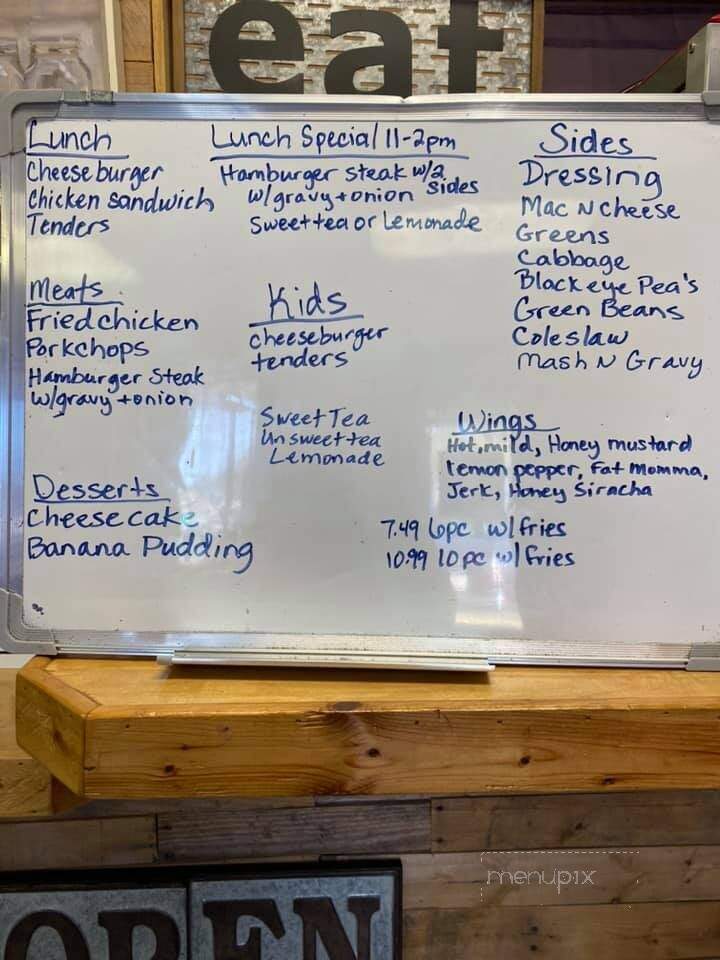 eat
Lunch
Cheeseburger
Chicken sandwich
Tenders
Lunch Special 11-2pm
Hamburger steak w/2 sides
w/gravy + onion
Sweet tea or Lemonade
Sides
Dressing
Mac N cheese
Greens
Cabbage
Black eye Pea's
Green Beans
Coleslaw
Mash N Gravy
Meats
Fried chicken
Porkchops
Hamburger Steak
w/gravy + onion
Kids
cheeseburger
tenders
Sweet Tea
Unsweet tea
Lemonade
Wings
Hot, mild, Honey mustard
lemon pepper, Fat Momma,
Jerk, Honey Siracha
7.49 6pc w/ fries
10.99 10 pc w/ fries
Desserts
Cheesecake
Banana Pudding
menupix
OPEN